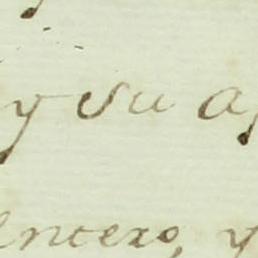 y su a
entero, y